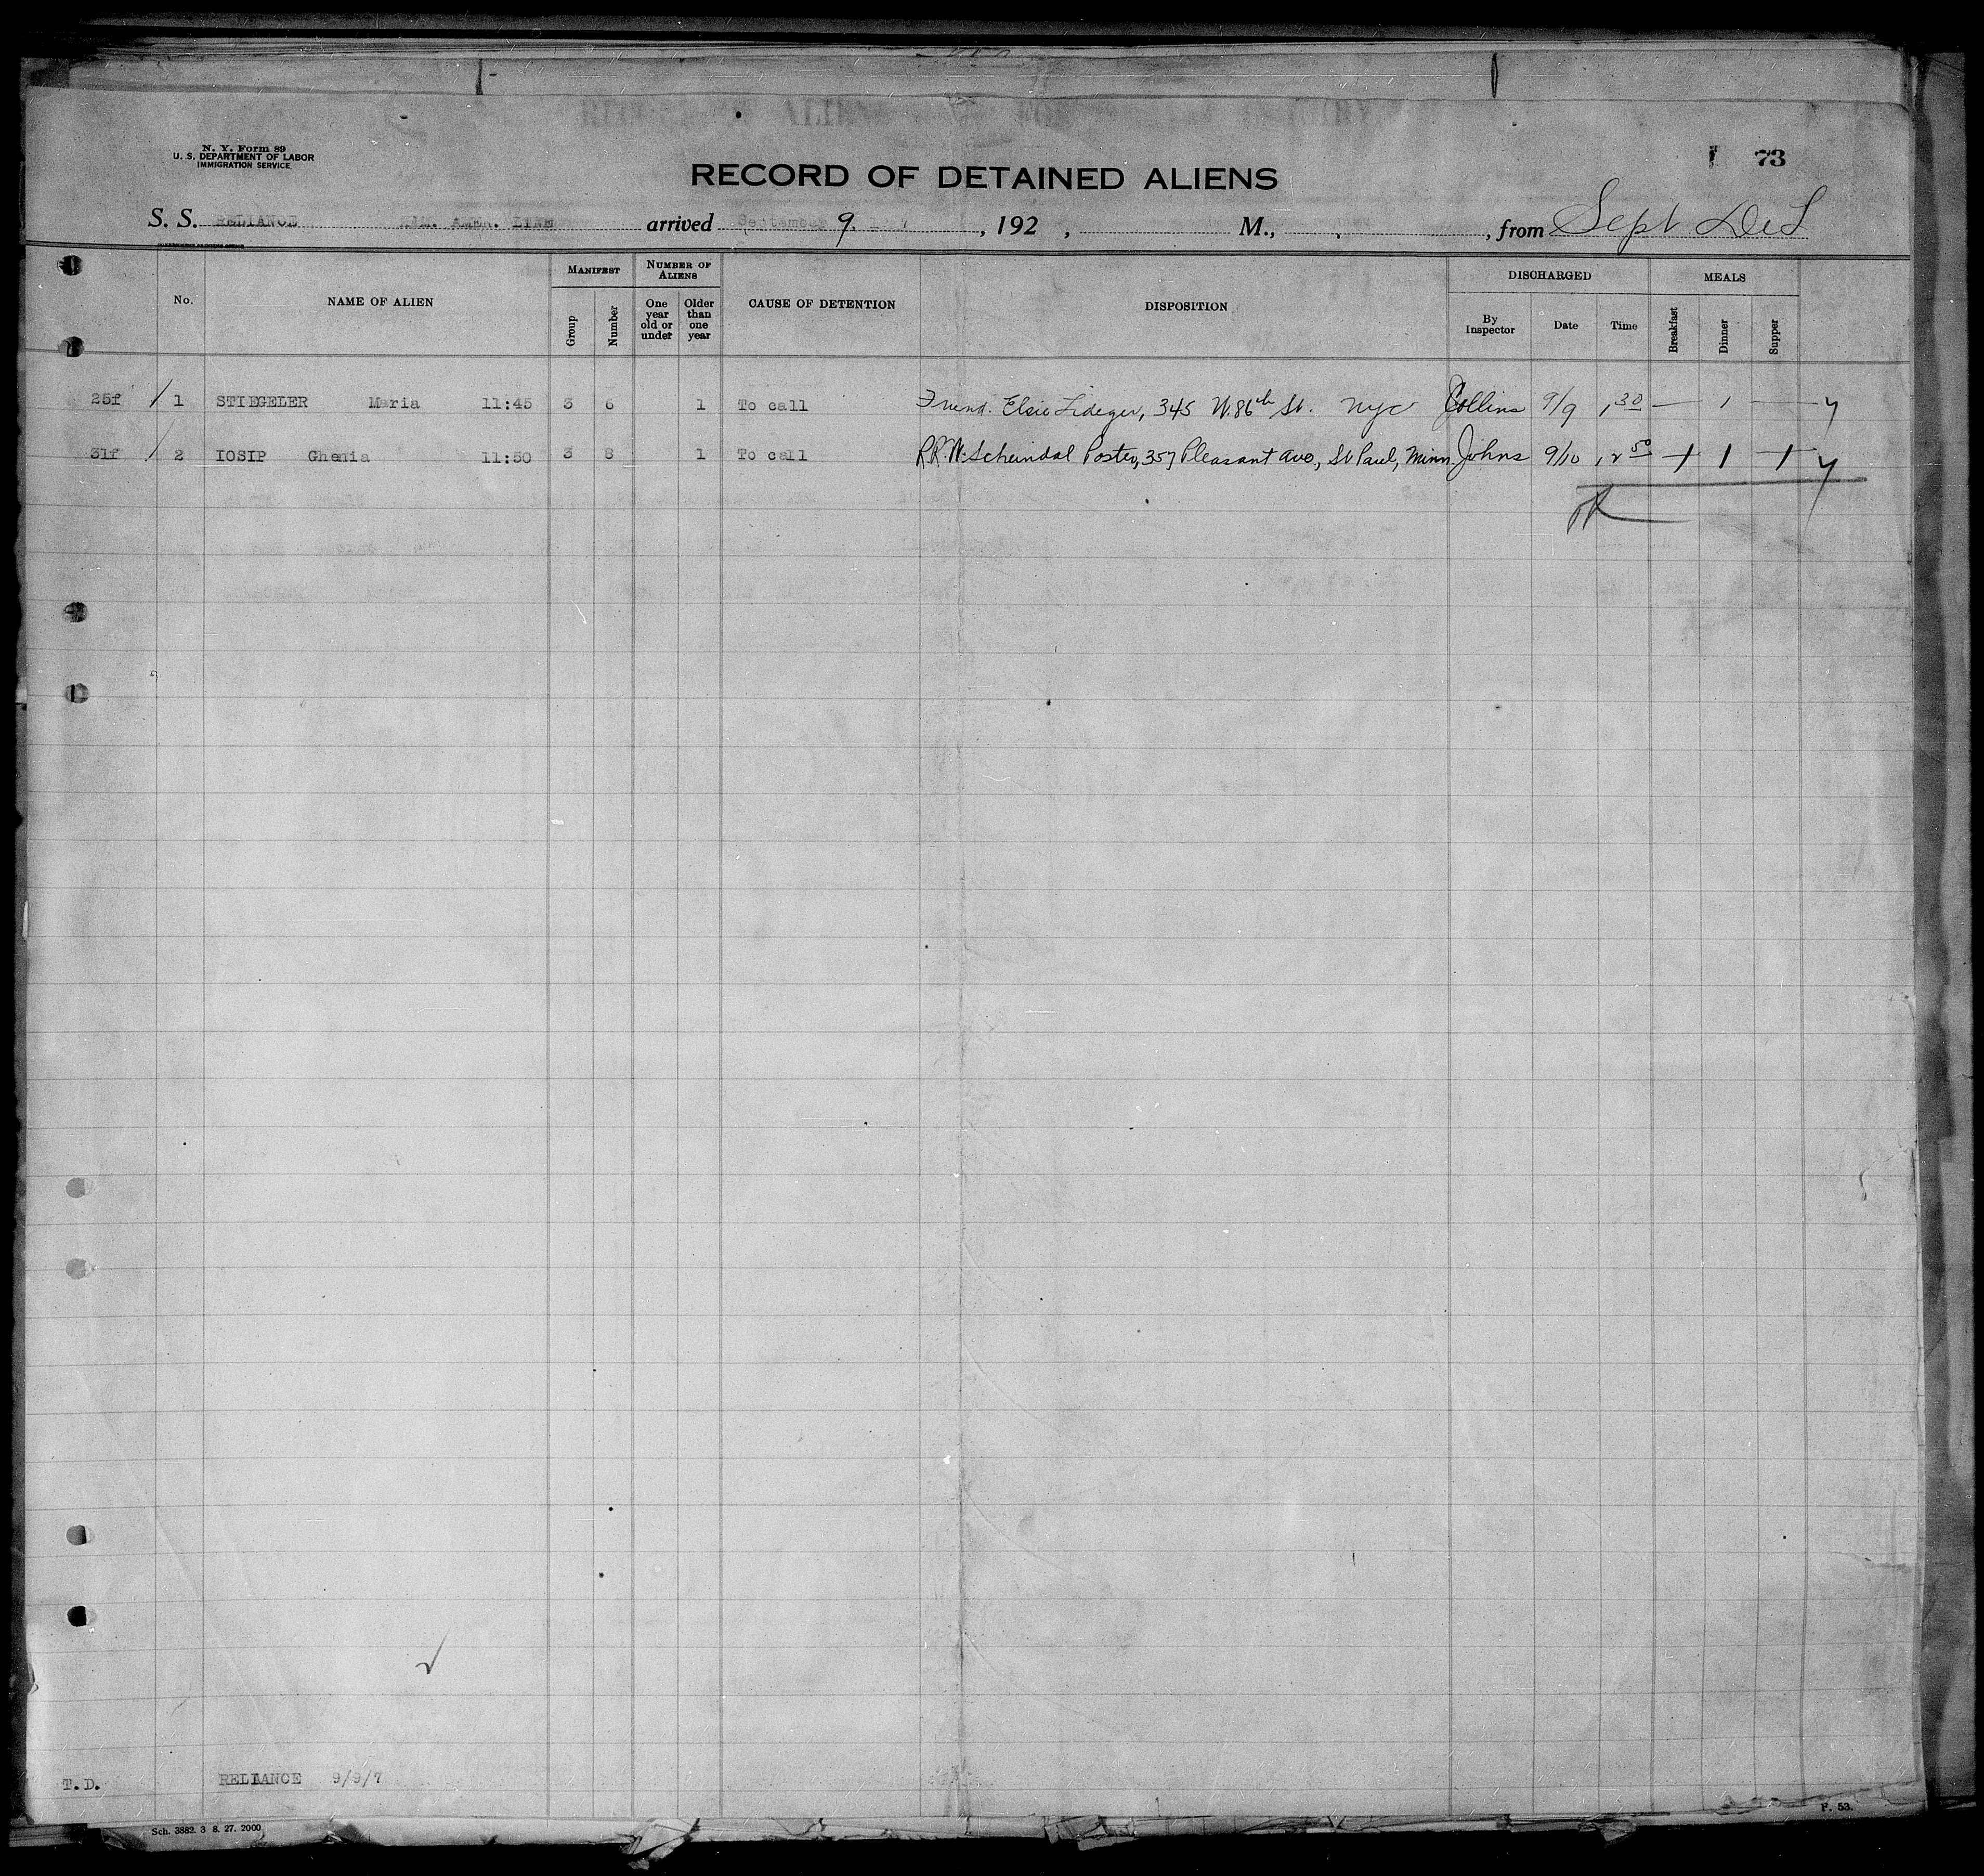 N. Y. Form 89
U. S. DEPARTMENT OF LABOR
IMMIGRATION SERVICE
73
RECORD OF DETAINED ALIENS
S. S. RELIANCE HAM. AMER. LINE arrived September 9, 192 , M., , from Sept
No. NAME OF ALIEN MANIFEST Group Number NUMBER OF ALIENS One year old or under Older than one year CAUSE OF DETENTION DISPOSITION DISCHARGED By Inspector Date Time MEALS Breakfast Dinner Supper
25f / 1 STIEGELER Maria 11:45 3 6 1 To call Friend. Elsie 345 W. 86th St. NYC Collins 9/9 1 30 — 1 —
31f / 2 IOSIP Ghenia 11:50 3 8 1 To call R.R. 357 Pleasant Ave., St Paul, Minn. Johns 9/10 12 50 1 1 1
OK
T. D. RELIANCE 9/9/7
F. 53.
Sch. 3882. 3 8. 27. 2000